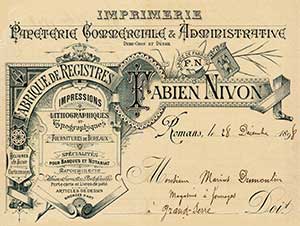 IMPRIMERIE
PAPETERIE COMMERCIALE & ADMINISTRATIVE
DEMI-GROS ET DÉTAIL
F.N
FABRIQUE DE REGISTRES
FABIEN NIVON
IMPRESSIONS
LITHOGRAPHIQUES
et
Typographiques
FOURNITURES DE BUREAUX
SPÉCIALITÉS
POUR BANQUES ET NOTARIAT
MAROQUINERIE
Porte-carte et Livres de poche
ARTICLES DE DESSIN
RELIURES
Romans, le 28 Décembre 189
Monsieur Marius Dumoulin
Magasins à fourrages
à Grand-Serre
Doit